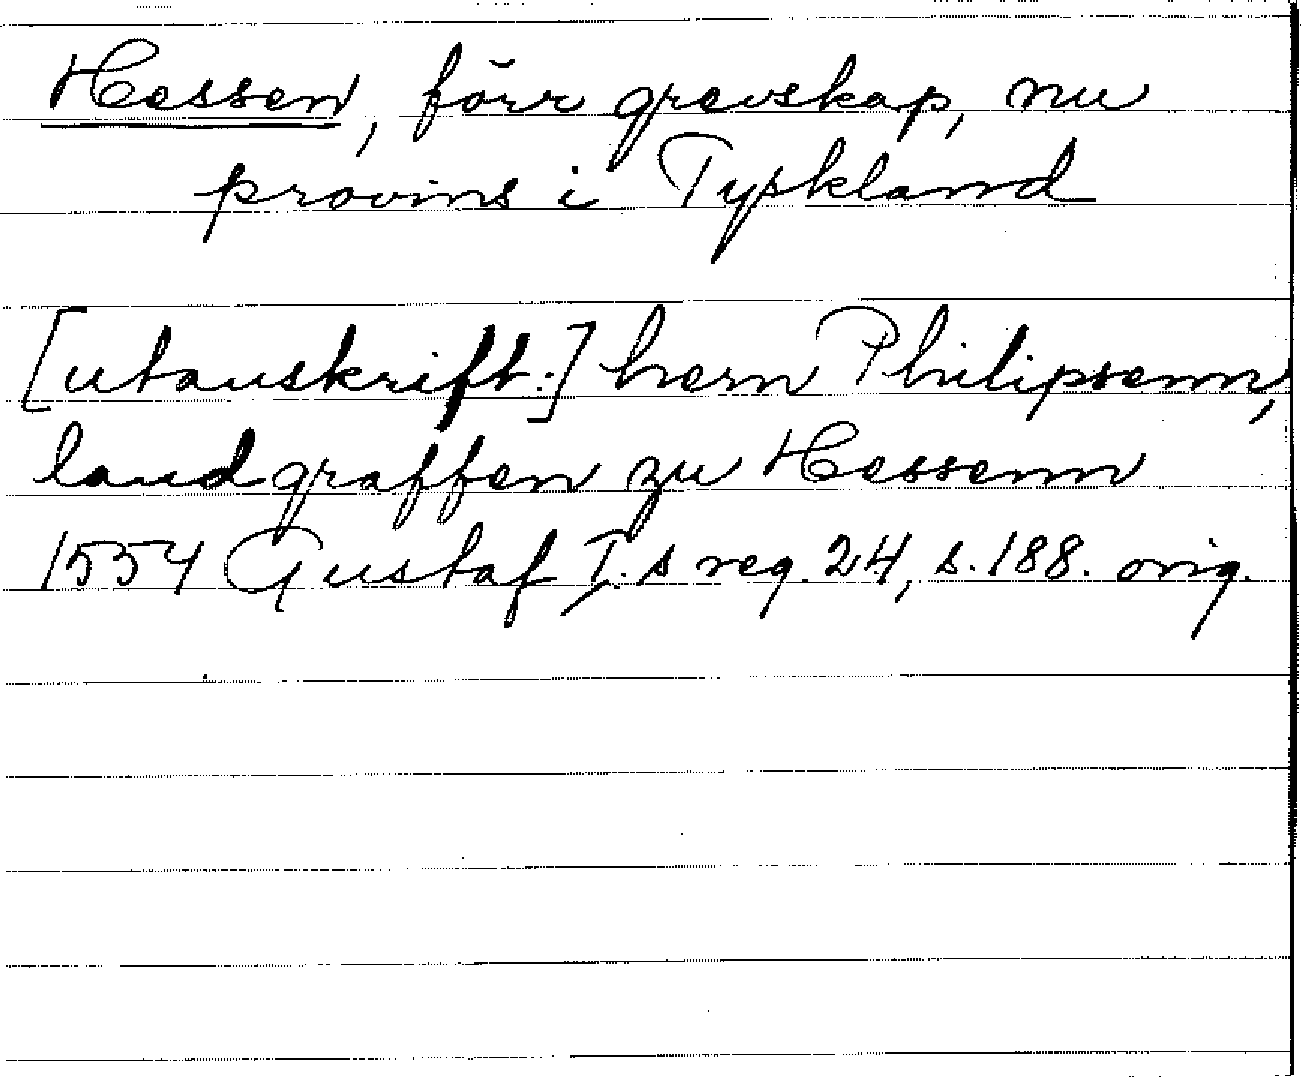 Hessen, förr grevskap, nu
provins i Tyskland
[utanskrift:] hern Philipsenn,
landgraffen zu Hessenn
1554 Gustaf I.s reg. 24, s. 188. orig.